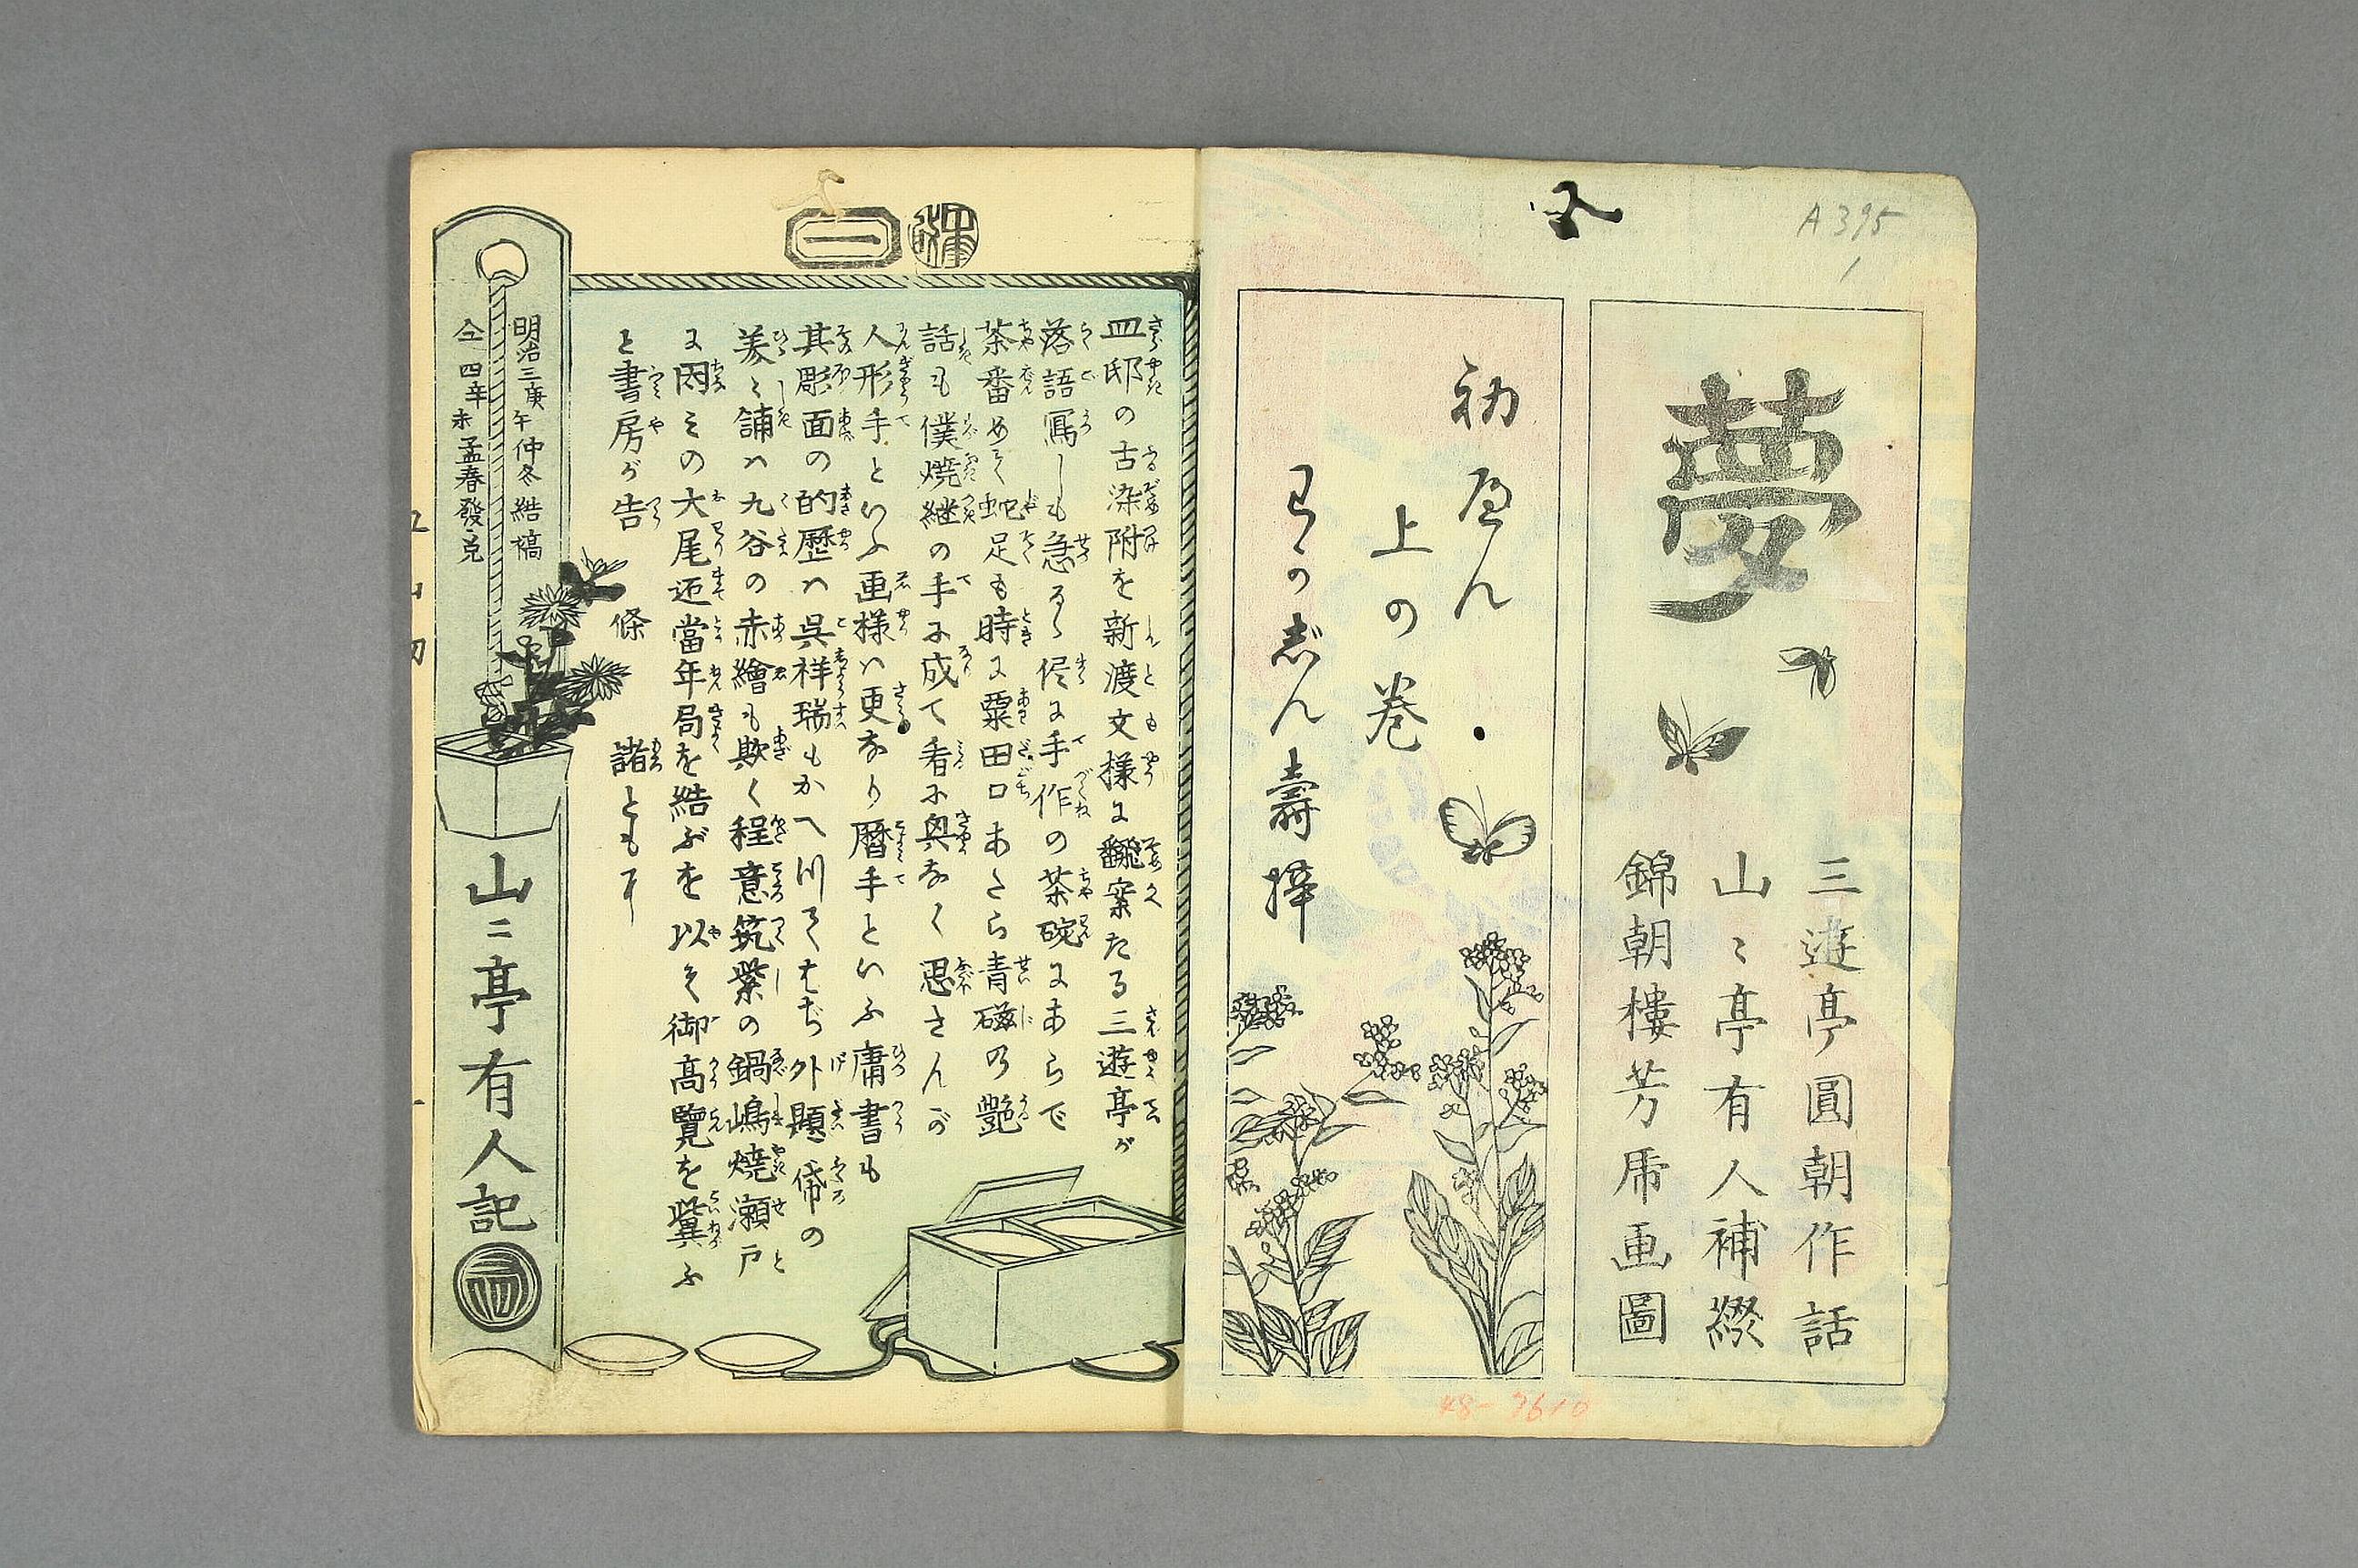 A395
1
夢
三遊亭圓朝作話
山〻亭有人補綴
錦朝樓芳乕画圖
初へん
上の巻
壽梓
48-
一
皿邸の古染附を新渡文様に飜案たる三遊亭が
落語寫しも急るゝ侭に手作の茶碗にあらで
茶番めく蛇足も時に粟田口あたら青磁の艶
話も僕焼継の手に成て看に興なく思さんが
人形手といふ画様ハ更なり暦手といふ庸書も
其彫面の的歴ハ呉祥瑞もかへ川てはぢ外題帒の
美く舗ハ九谷の赤繪も欺く程意筑紫の鍋嶋焼瀬戸
に閑その大尾迄當年局を結ぶを以て御髙覽を冀ふ
と書房が告
條
諸ともす
明治三庚午仲冬結稿
仝四辛未孟春發兌
山〻亭有人記